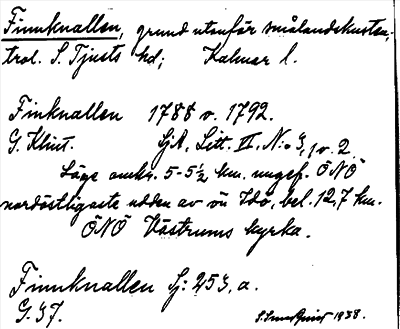 Finnknallen, grund utanför smålandskusten;
trol. S. Tjusts hd; Kalmar l.
Finknallen 1788 o. 1792.
G. Klint. Sjk, Litt. II, N:o 3, 1 o. 2.
Läge omkr. 5-5½ km. ungef. ÖNÖ
nordöstligaste udden av ön Idö, bel. 12,7 km.
ÖNÖ Västrums kyrka.
Finnknallen Sj: 253, a.
G. 37. 1938.